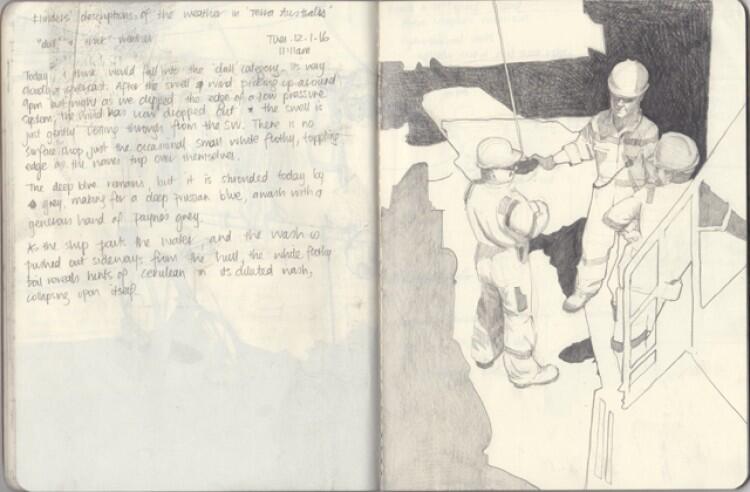 Flinders' descriptions of the weather in 'Terra Australis'
"dull" weather
Tues. 12-1-16
11:11am
Today, I think would fall into the 'dull' category. Its very
cloudy & overcast. After the swell & wind picking up around
9pm last night as we clipped the edge of a low pressure
system, the wind has now dropped out & the swell is
just gently rolling through from the SW. There is no
surface chop just the occasional small white frothy, toppling
edge as the waves trip over themselves.
The deep blue remains, but it is shrouded today by
grey, making for a deep prussian blue, awash with a
generous hand of paynes grey.
As the ship parts the water, and the wash is
pushed out sideways from the hull, the white frothy
boil reveals hints of cerulean in its diluted wash,
collapsing upon itself.